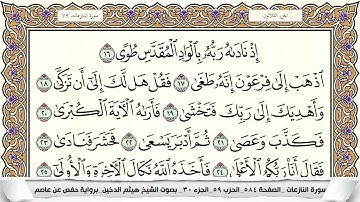 الجزء الثلاثون
سورة النازعات ٧٩
إِذْ نَادَىٰهُ رَبُّهُۥ بِٱلْوَادِ ٱلْمُقَدَّسِ طُوًى ١٦
ٱذْهَبْ إِلَىٰ فِرْعَوْنَ إِنَّهُۥ طَغَىٰ ١٧ فَقُلْ هَل لَّكَ إِلَىٰٓ أَن تَزَكَّىٰ ١٨
وَأَهْدِيَكَ إِلَىٰ رَبِّكَ فَتَخْشَىٰ ١٩ فَأَرَىٰهُ ٱلْـَٔايَةَ ٱلْكُبْرَىٰ ٢٠
فَكَذَّبَ وَعَصَىٰ ٢١ ثُمَّ أَدْبَرَ يَسْعَىٰ ٢٢ فَحَشَرَ فَنَادَىٰ ٢٣
فَقَالَ أَنَا۠ رَبُّكُمُ ٱلْأَعْلَىٰ ٢٤ فَأَخَذَهُ ٱللَّهُ نَكَالَ ٱلْـَٔاخِرَةِ وَٱلْأُولَىٰٓ ٢٥
سورة النازعات _ الصفحة ٥٨٤_ الحزب ٥٩_ الجزء ٣٠ _ بصوت الشيخ هيثم الدخين_ برواية حفص عن عاصم